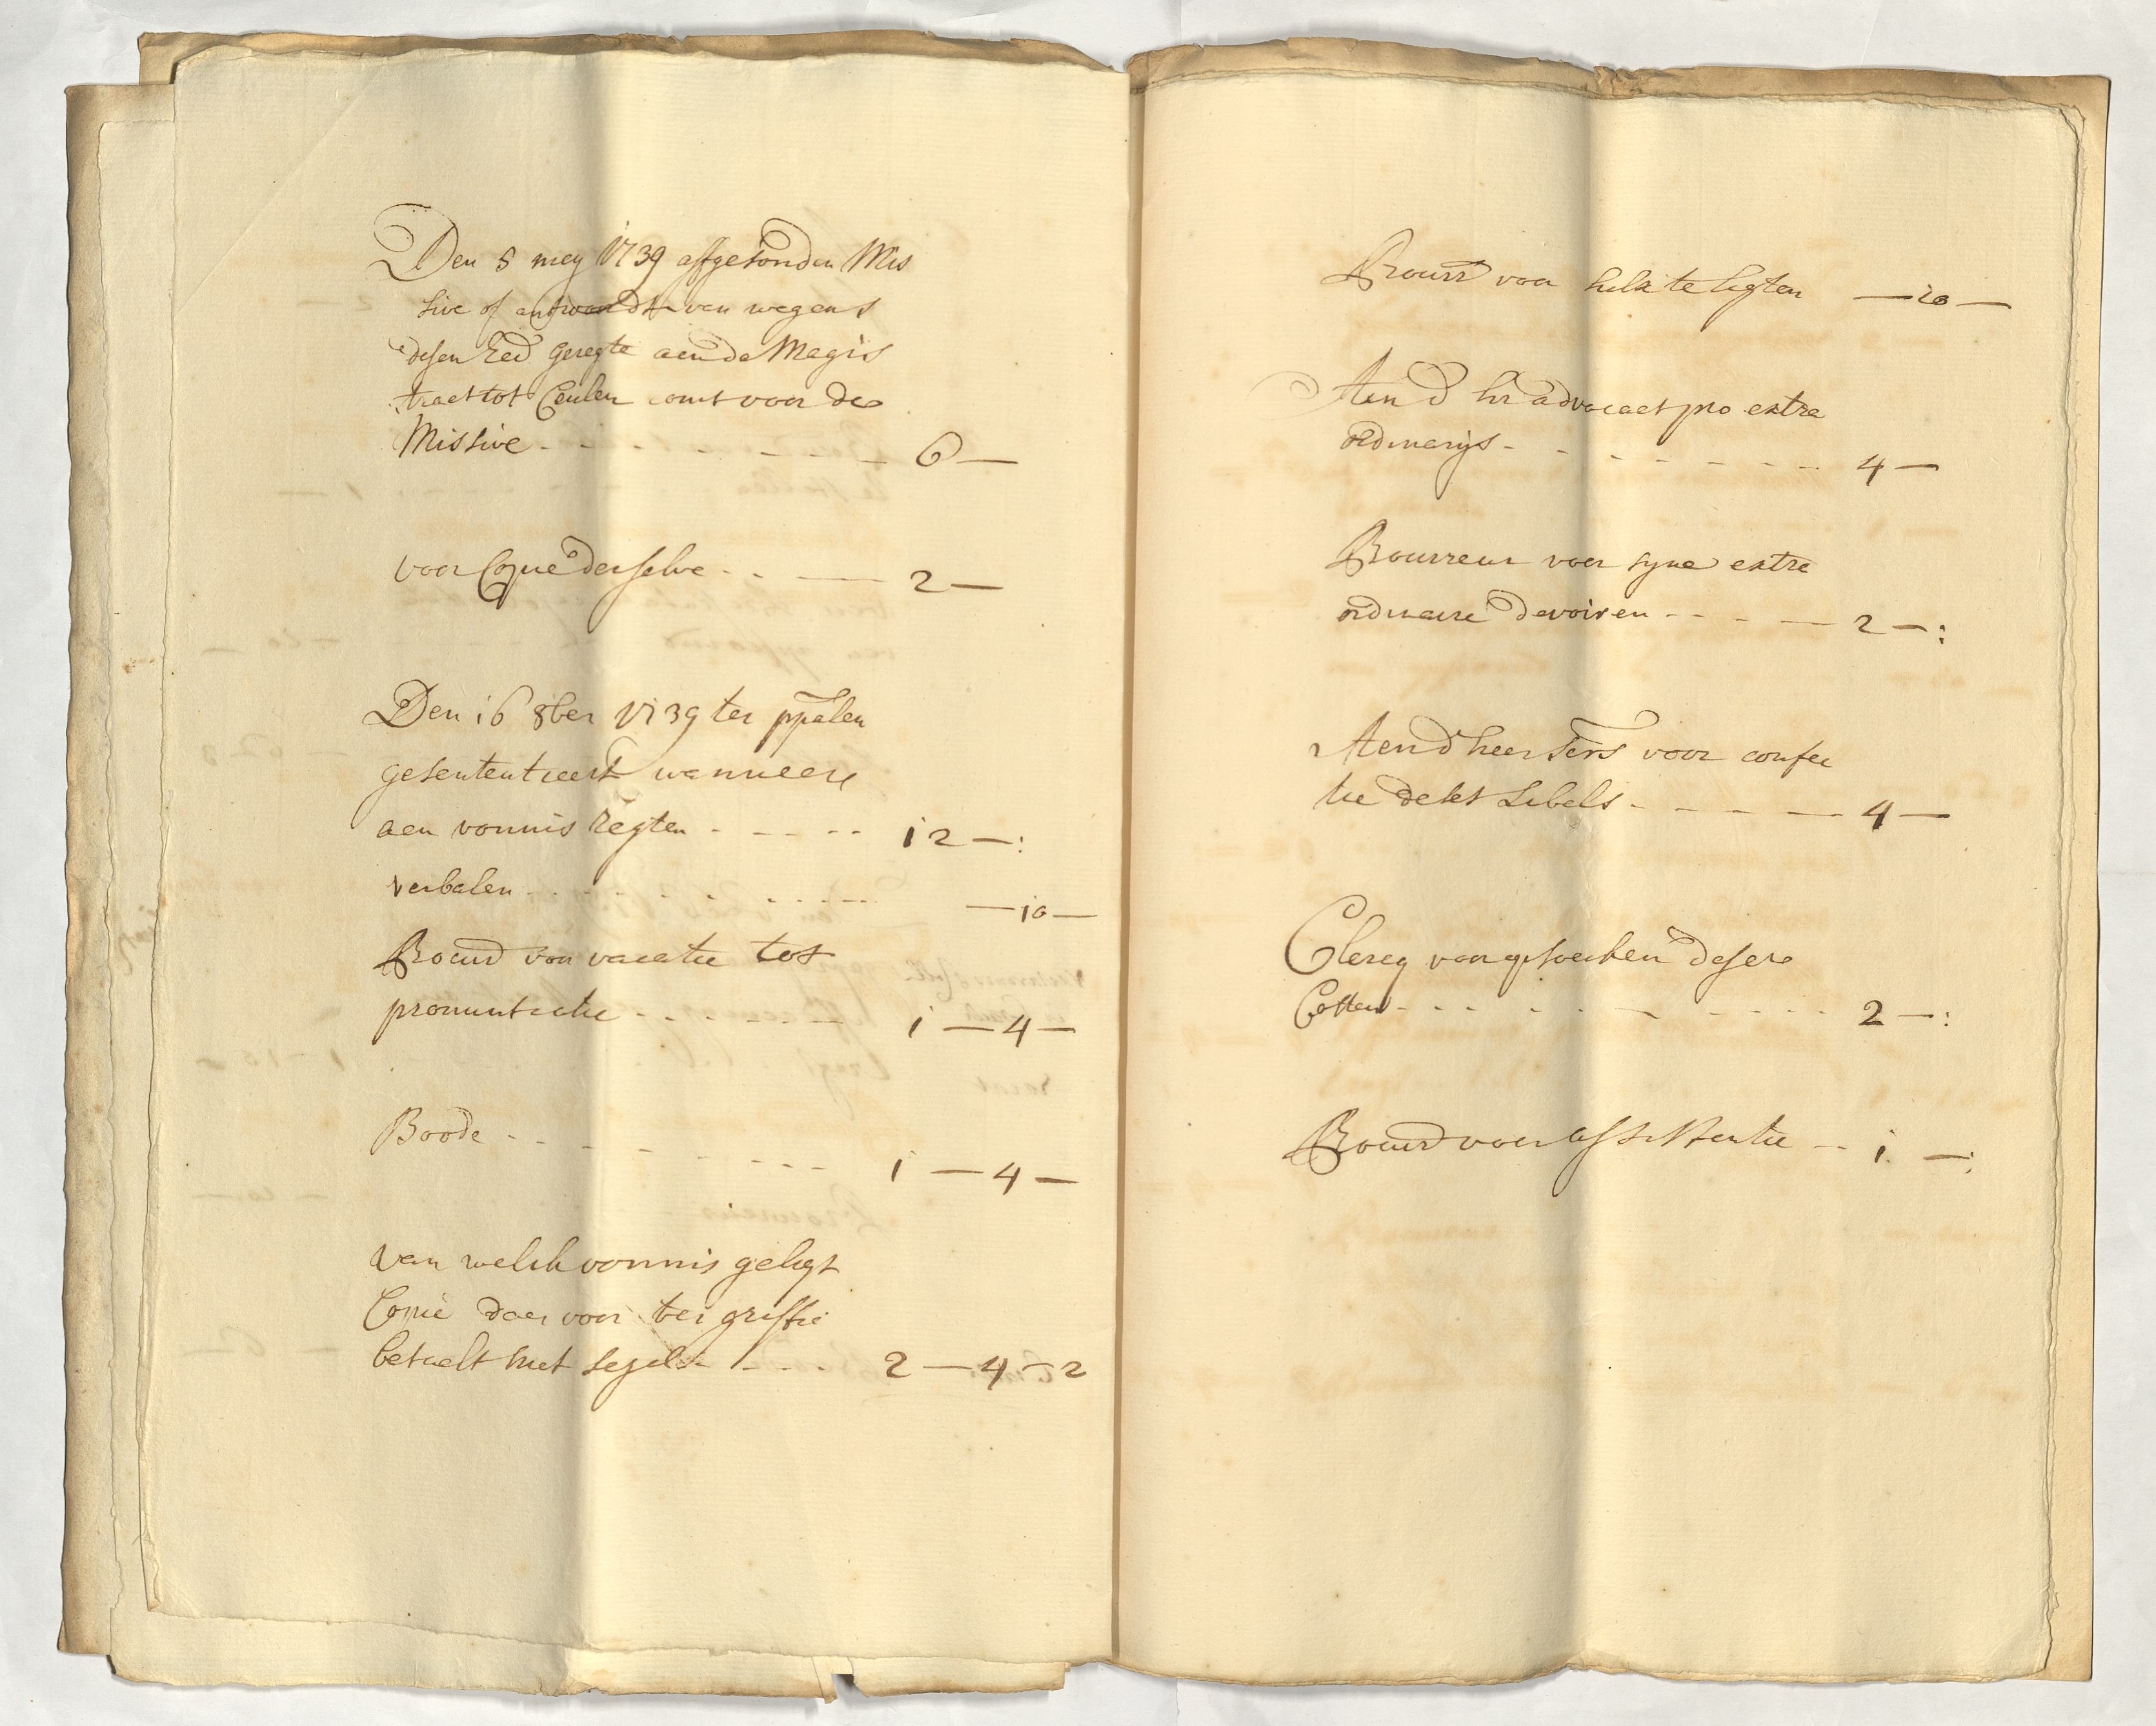 Den 5 mey 1739 affgesonden Mis
sive of antwoordt van wegens
desen Ed Geregte aen de Magis
traet tot Ceulen comt voor de
Missive - - - - - - - - 6 —
voor Copie derselve - - — 2 —
Den 16 8ber 1739 ter ppalen
gesententieert wanneer
aen vonnis regten - - - - - 12 —:
verbalen - - - - - - - - — 10 —
Procur voor vacatie tot
pronuntiatie - - - - - - - 1 — 4 —
Boode - - - - - - - - 1 — 4 —
van welck vonnis geligt
Copie daer voor ter griffie
betaelt met segel - - - - 2 — 4 — 2
Procurr voor selve te ligten — 10 —
Aen d hr advocaet pro extra
ordinarijs - - - - - - - - 4 —
Procureur voor syne extra
ordinaire devoiren - - - — 2 —:
Aen d heer voor confec
tie deses Libels - - - - — 4 —
Clercq van deser
Costen - - - - - - - - - 2 —:
Procur voor assistentie - - 1 —: